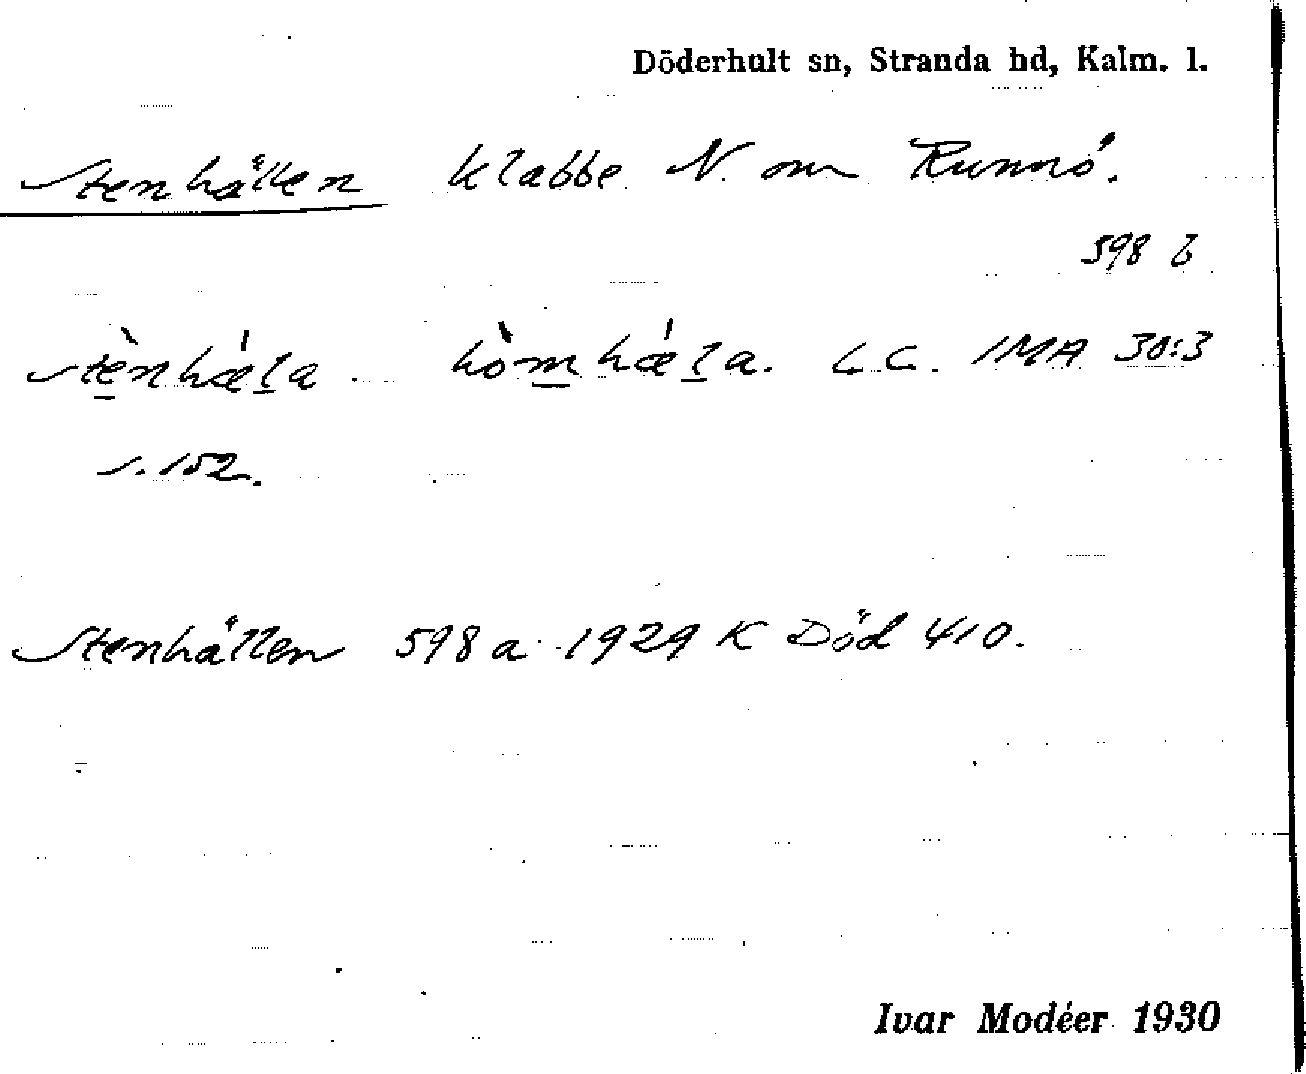 Döderhult sn, Stranda hd, Kalm. l.
Stenhällen klabbe N. om Runnö.
598 b
stènhæ̍l̠a. hòm̠hæ̍l̠a. L.C. IMA 30:3
s. 152.
Stenhällen 598 a 1929 K Död 410.
Ivar Modéer 1930